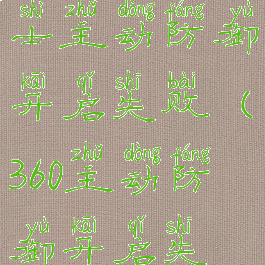 shì zhǔ dòng fáng yù
士主动防御
kāi qǐ shī bài
开启失败(
zhǔ dòng fáng
360主动防
yù kāi qǐ shī
御开启失